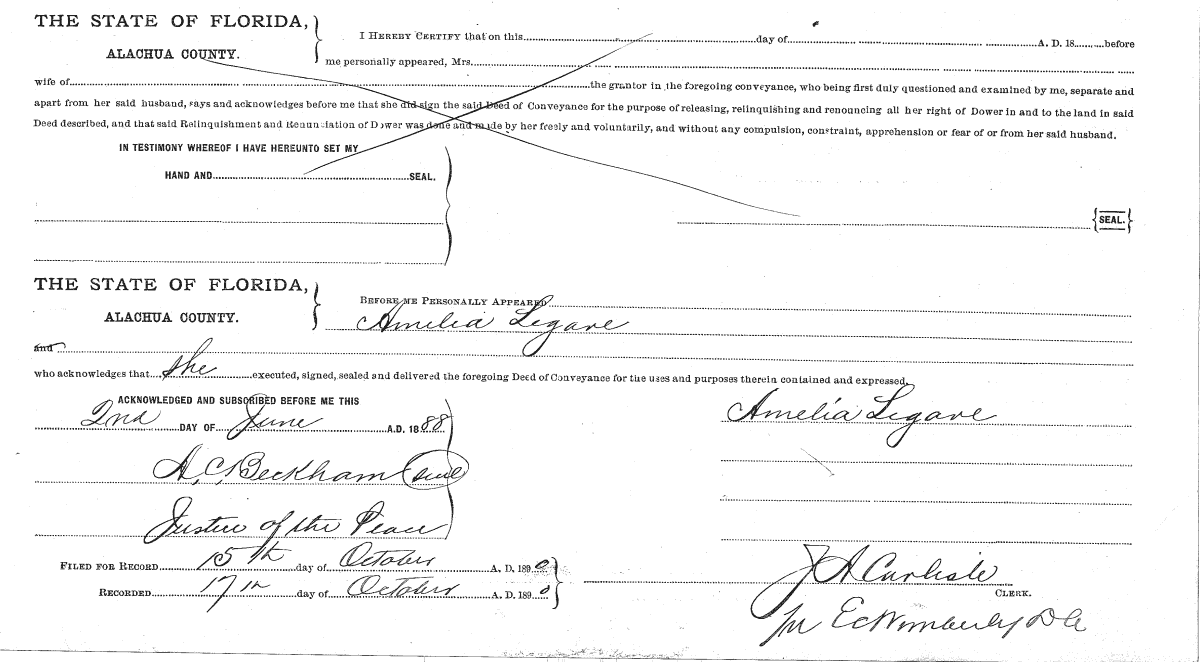 THE STATE OF FLORIDA,
ALACHUA COUNTY.
I HEREBY CERTIFY that on this day of A. D. 18 before
me personally appeared, Mrs.
wife of the grantor in the foregoing conveyance, who being first duly questioned and examined by me, separate and
apart from her said husband, says and acknowledges before me that she did sign the said Deed of Conveyance for the purpose of releasing, relinquishing and renouncing all her right of Dower in and to the land in said
Deed described, and that said Relinquishment and Renunciation of Dower was done and made by her freely and voluntarily, and without any compulsion, constraint, apprehension or fear of or from her said husband.
IN TESTIMONY WHEREOF I HAVE HEREUNTO SET MY
HAND AND SEAL.
SEAL.
THE STATE OF FLORIDA,
ALACHUA COUNTY.
BEFORE ME PERSONALLY APPEARED
Amelia Legare
and
who acknowledges that she executed, signed, sealed and delivered the foregoing Deed of Conveyance for the uses and purposes therein contained and expressed.
ACKNOWLEDGED AND SUBSCRIBED BEFORE ME THIS
2nd DAY OF June A.D. 1888
Amelia Legare
A. C. Beckham (Seal)
Justice of the Peace
FILED FOR RECORD 15th day of October A. D. 1890
RECORDED 17th day of October A. D. 1890
J A Carlisle
CLERK.
Wimberly D C